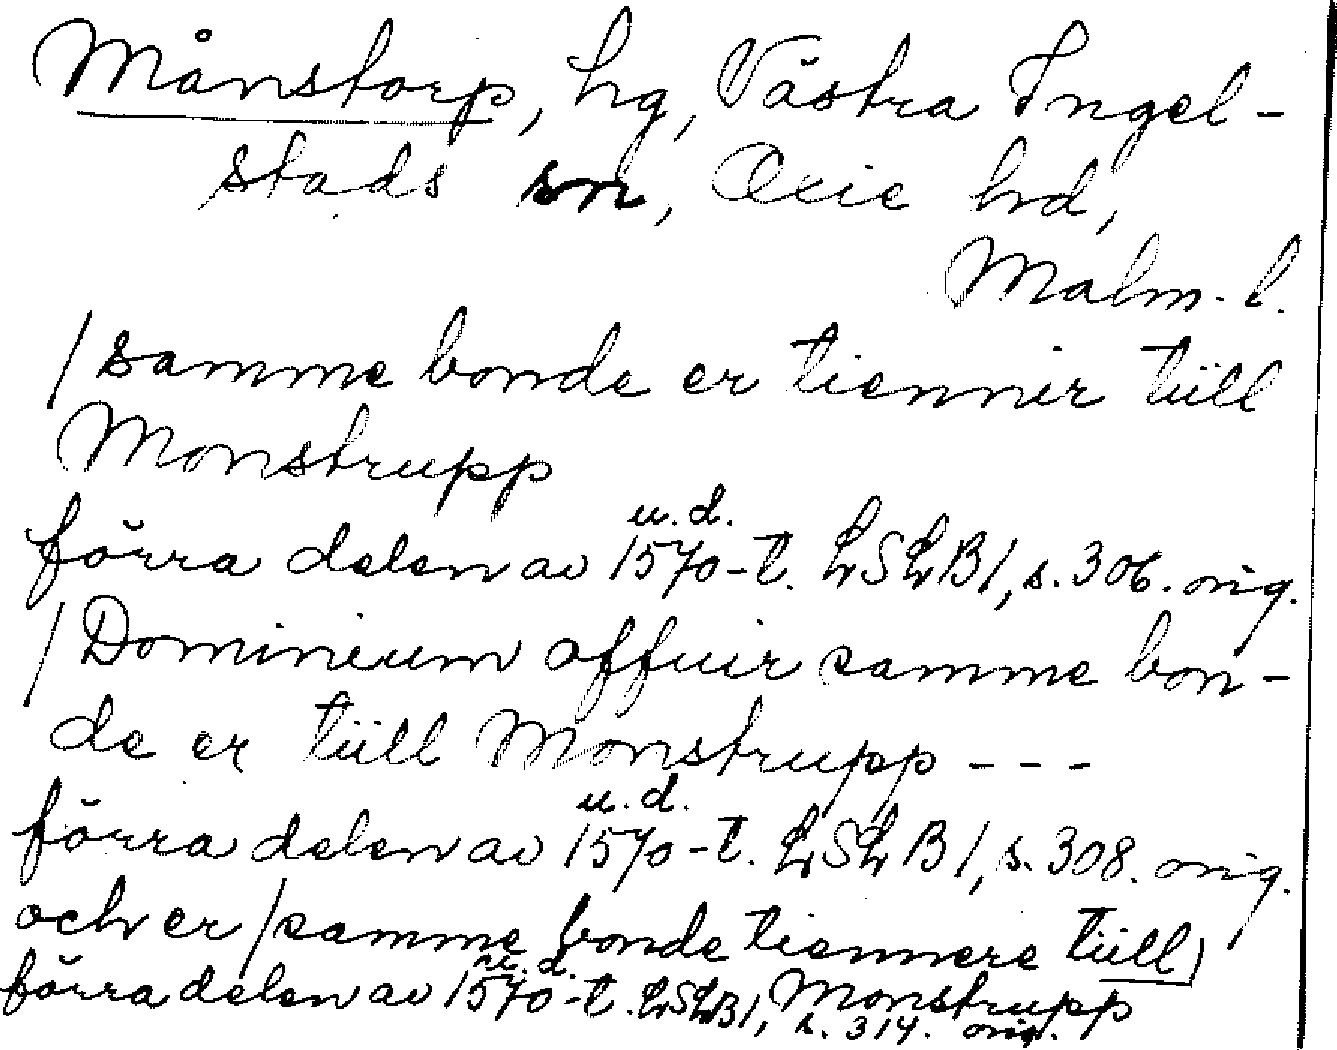 Månstorp, hg, Västra Ingel-
stads sn, Oxie hd,
Malm. l.
/samme bonde er tienner tiill
Monstrupp
u. d.
förra delen av 1570-t. LSLB1, s. 306. orig.
/Dominium offuir samme bon-
de er tiill Monstrupp - - -
u. d.
förra delen av 1570-t. LSLB1, s. 308. orig.
och er /samme bonde tiennere tiill)
u. d.
förra delen av 1570-t. LSLB1, Monstrupp
s. 314. orig.